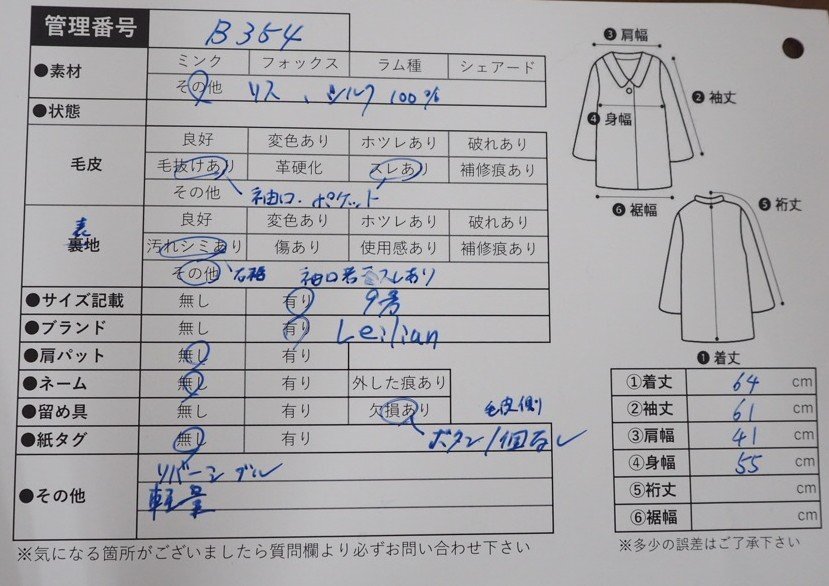 管理番号 B354
●素材 ミンク フォックス ラム種 シェアード
その他 リス、シルク 100%
●状態
毛皮 良好 変色あり ホツレあり 破れあり
毛抜けあり 革硬化 スレあり 補修痕あり
その他 袖口・ポケット
表
裏地 良好 変色あり ホツレあり 破れあり
汚れシミあり 傷あり 使用感あり 補修痕あり
その他 袖口 スレあり
●サイズ記載 無し 有り 9号
●ブランド 無し 有り Leilian
●肩パット 無し 有り
●ネーム 無し 有り 外した痕あり
●留め具 無し 有り 欠損あり 毛皮側
ボタン1個なし
●紙タグ 無し 有り
●その他 リバーシブル
軽量
※気になる箇所がございましたら質問欄より必ずお問い合わせ下さい
❸肩幅
❷袖丈
❹身幅
❻裄幅
❺裄丈
❶着丈
①着丈 64 cm
②袖丈 61 cm
③肩幅 41 cm
④身幅 55 cm
⑤裄丈 cm
⑥裾幅 cm
※多少の誤差はご了承下さい